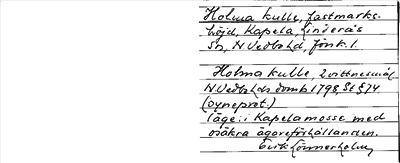 Holma kulle, fastmarks-
höjd, Kapela, Linderås
sn, N Vedbo hd, Jönk. l.
Holma kulle, 2 vittnesmål
N Vedbo hds domb 1798, St § 74
(syneprot.)
Läge: i Kapelamosse med
osäkra ägoreförhållanden.
Erik Lönnerholm